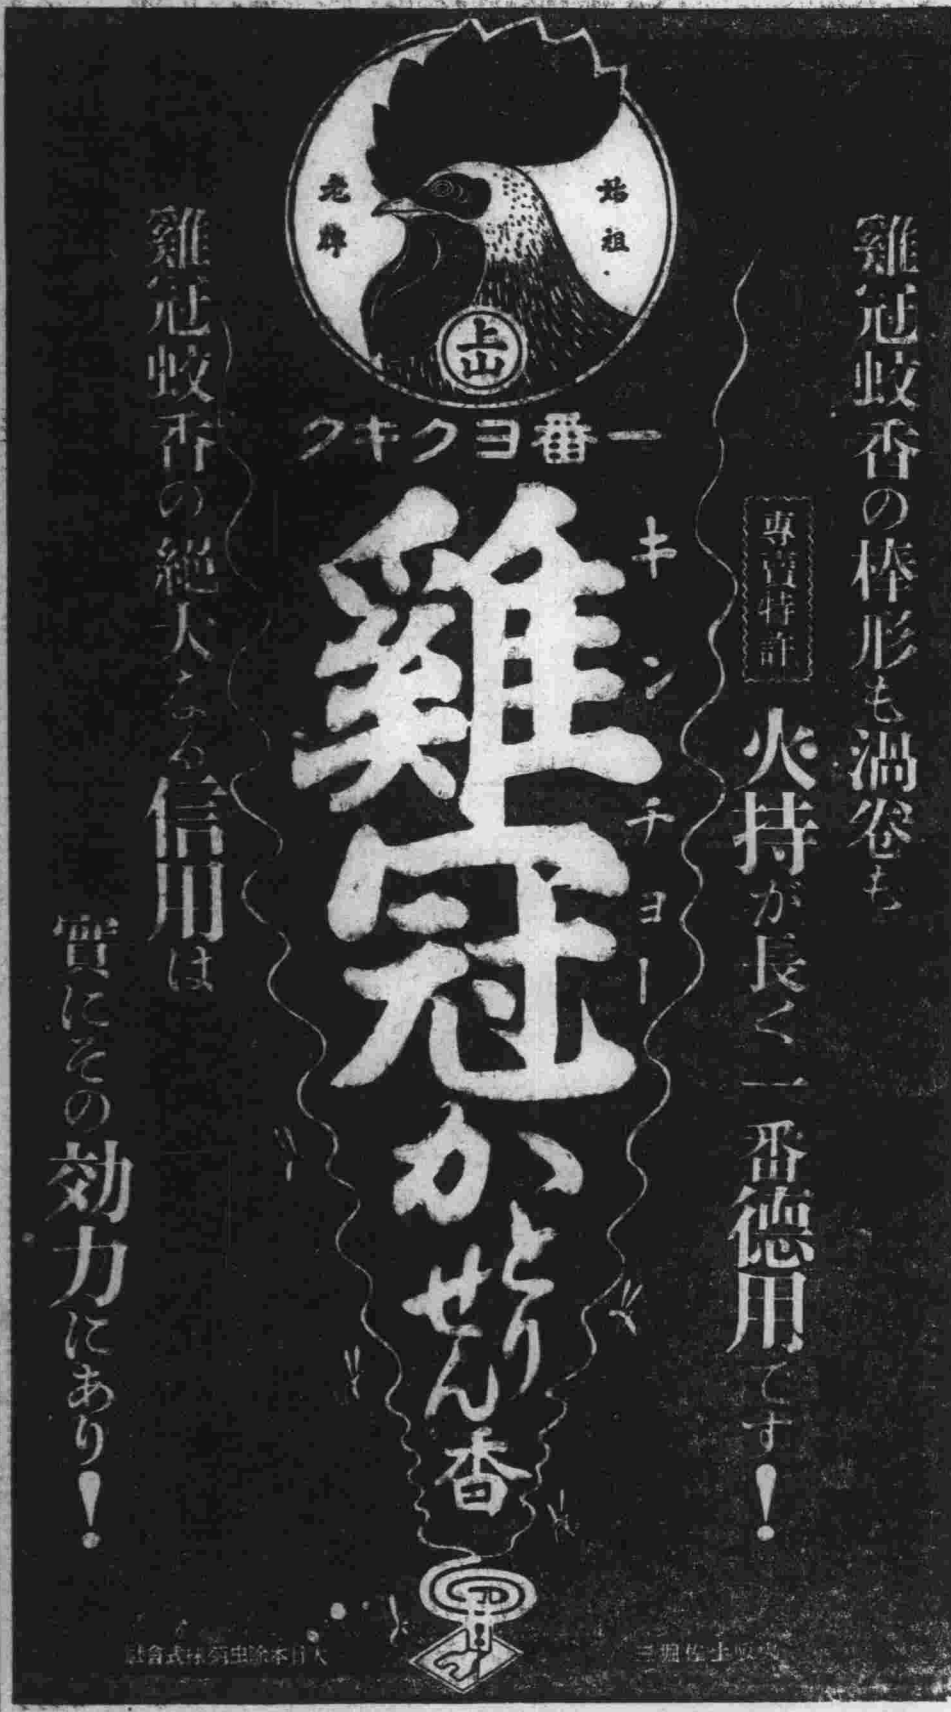 始祖
老牌
上山
一番ヨクキク
雞冠蚊香の棒形も渦卷も
專賣特許
火持が長く一番徳用です！
キンチョー
雞冠
かとりせん香
雞冠蚊香の絶大なる信用は
實にその効力にあり！
大日本除虫菊株式會社